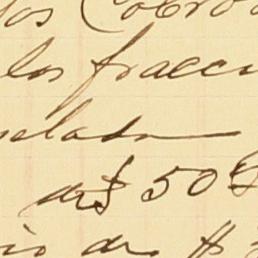 los Cobro
los fracci
selada
de $ 50
io de $